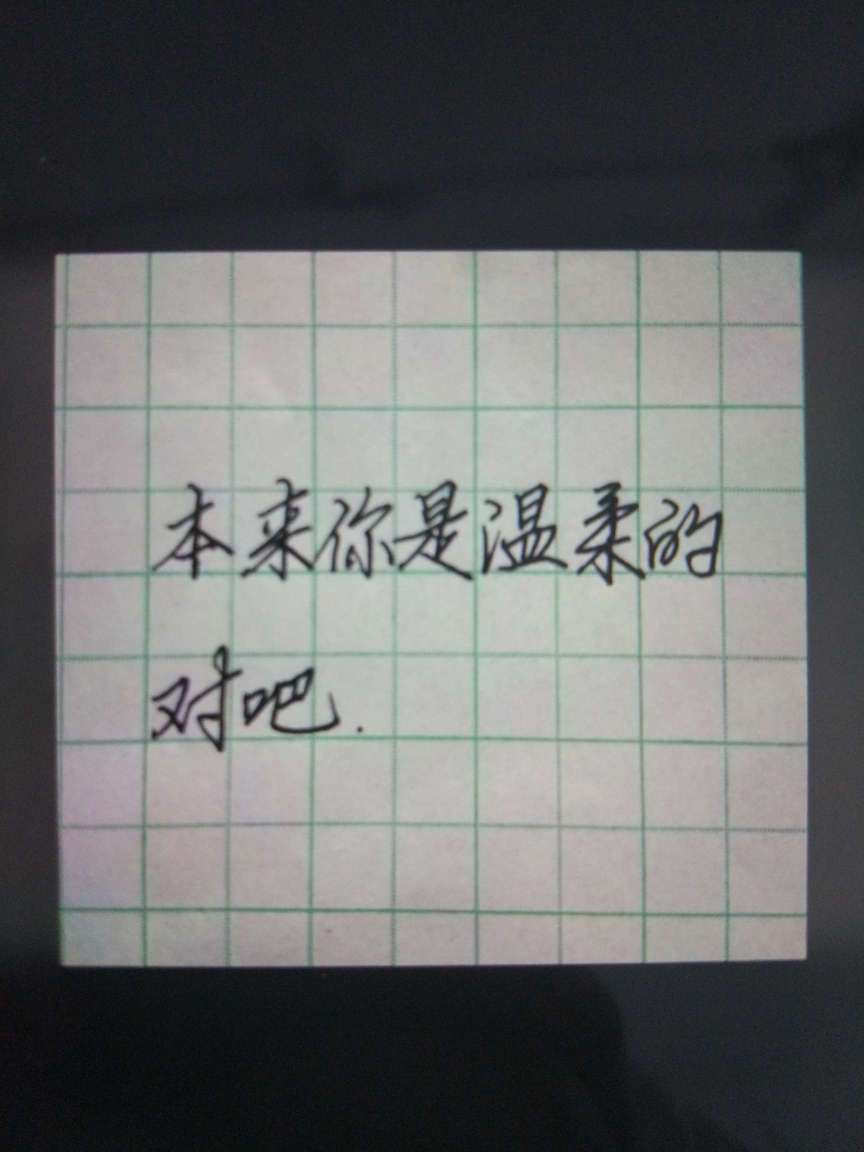 本来你是温柔的
对吧.